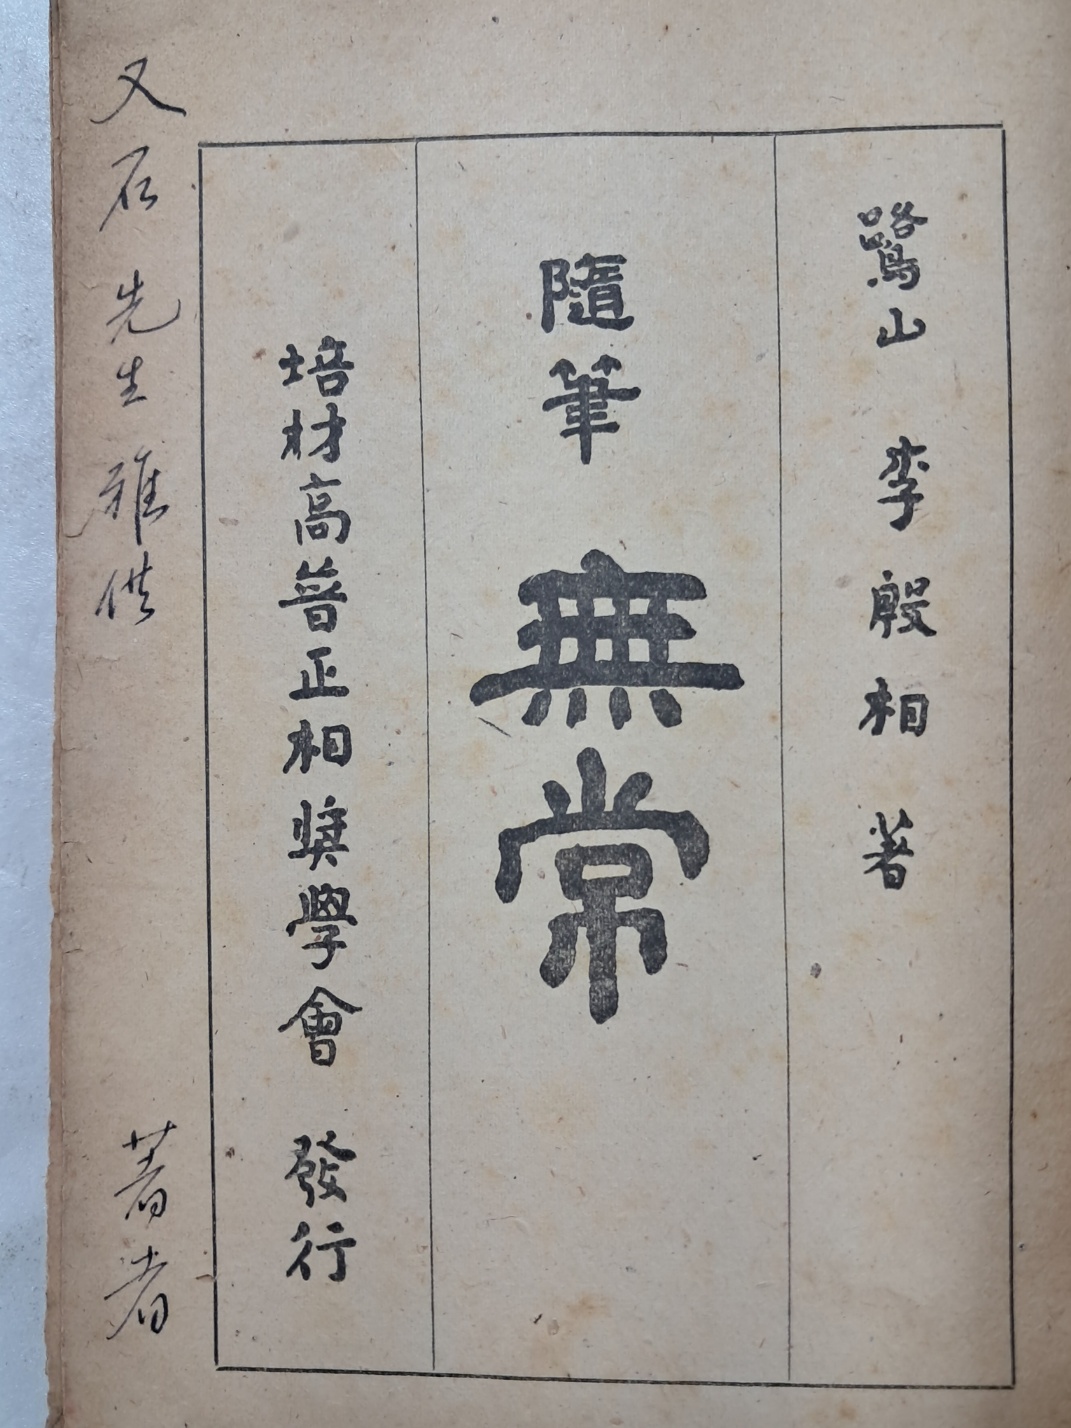 鷺山 李殷相 著
隨筆 無常
培材高普正相奬學會 發行
又石先生 雅供 著者